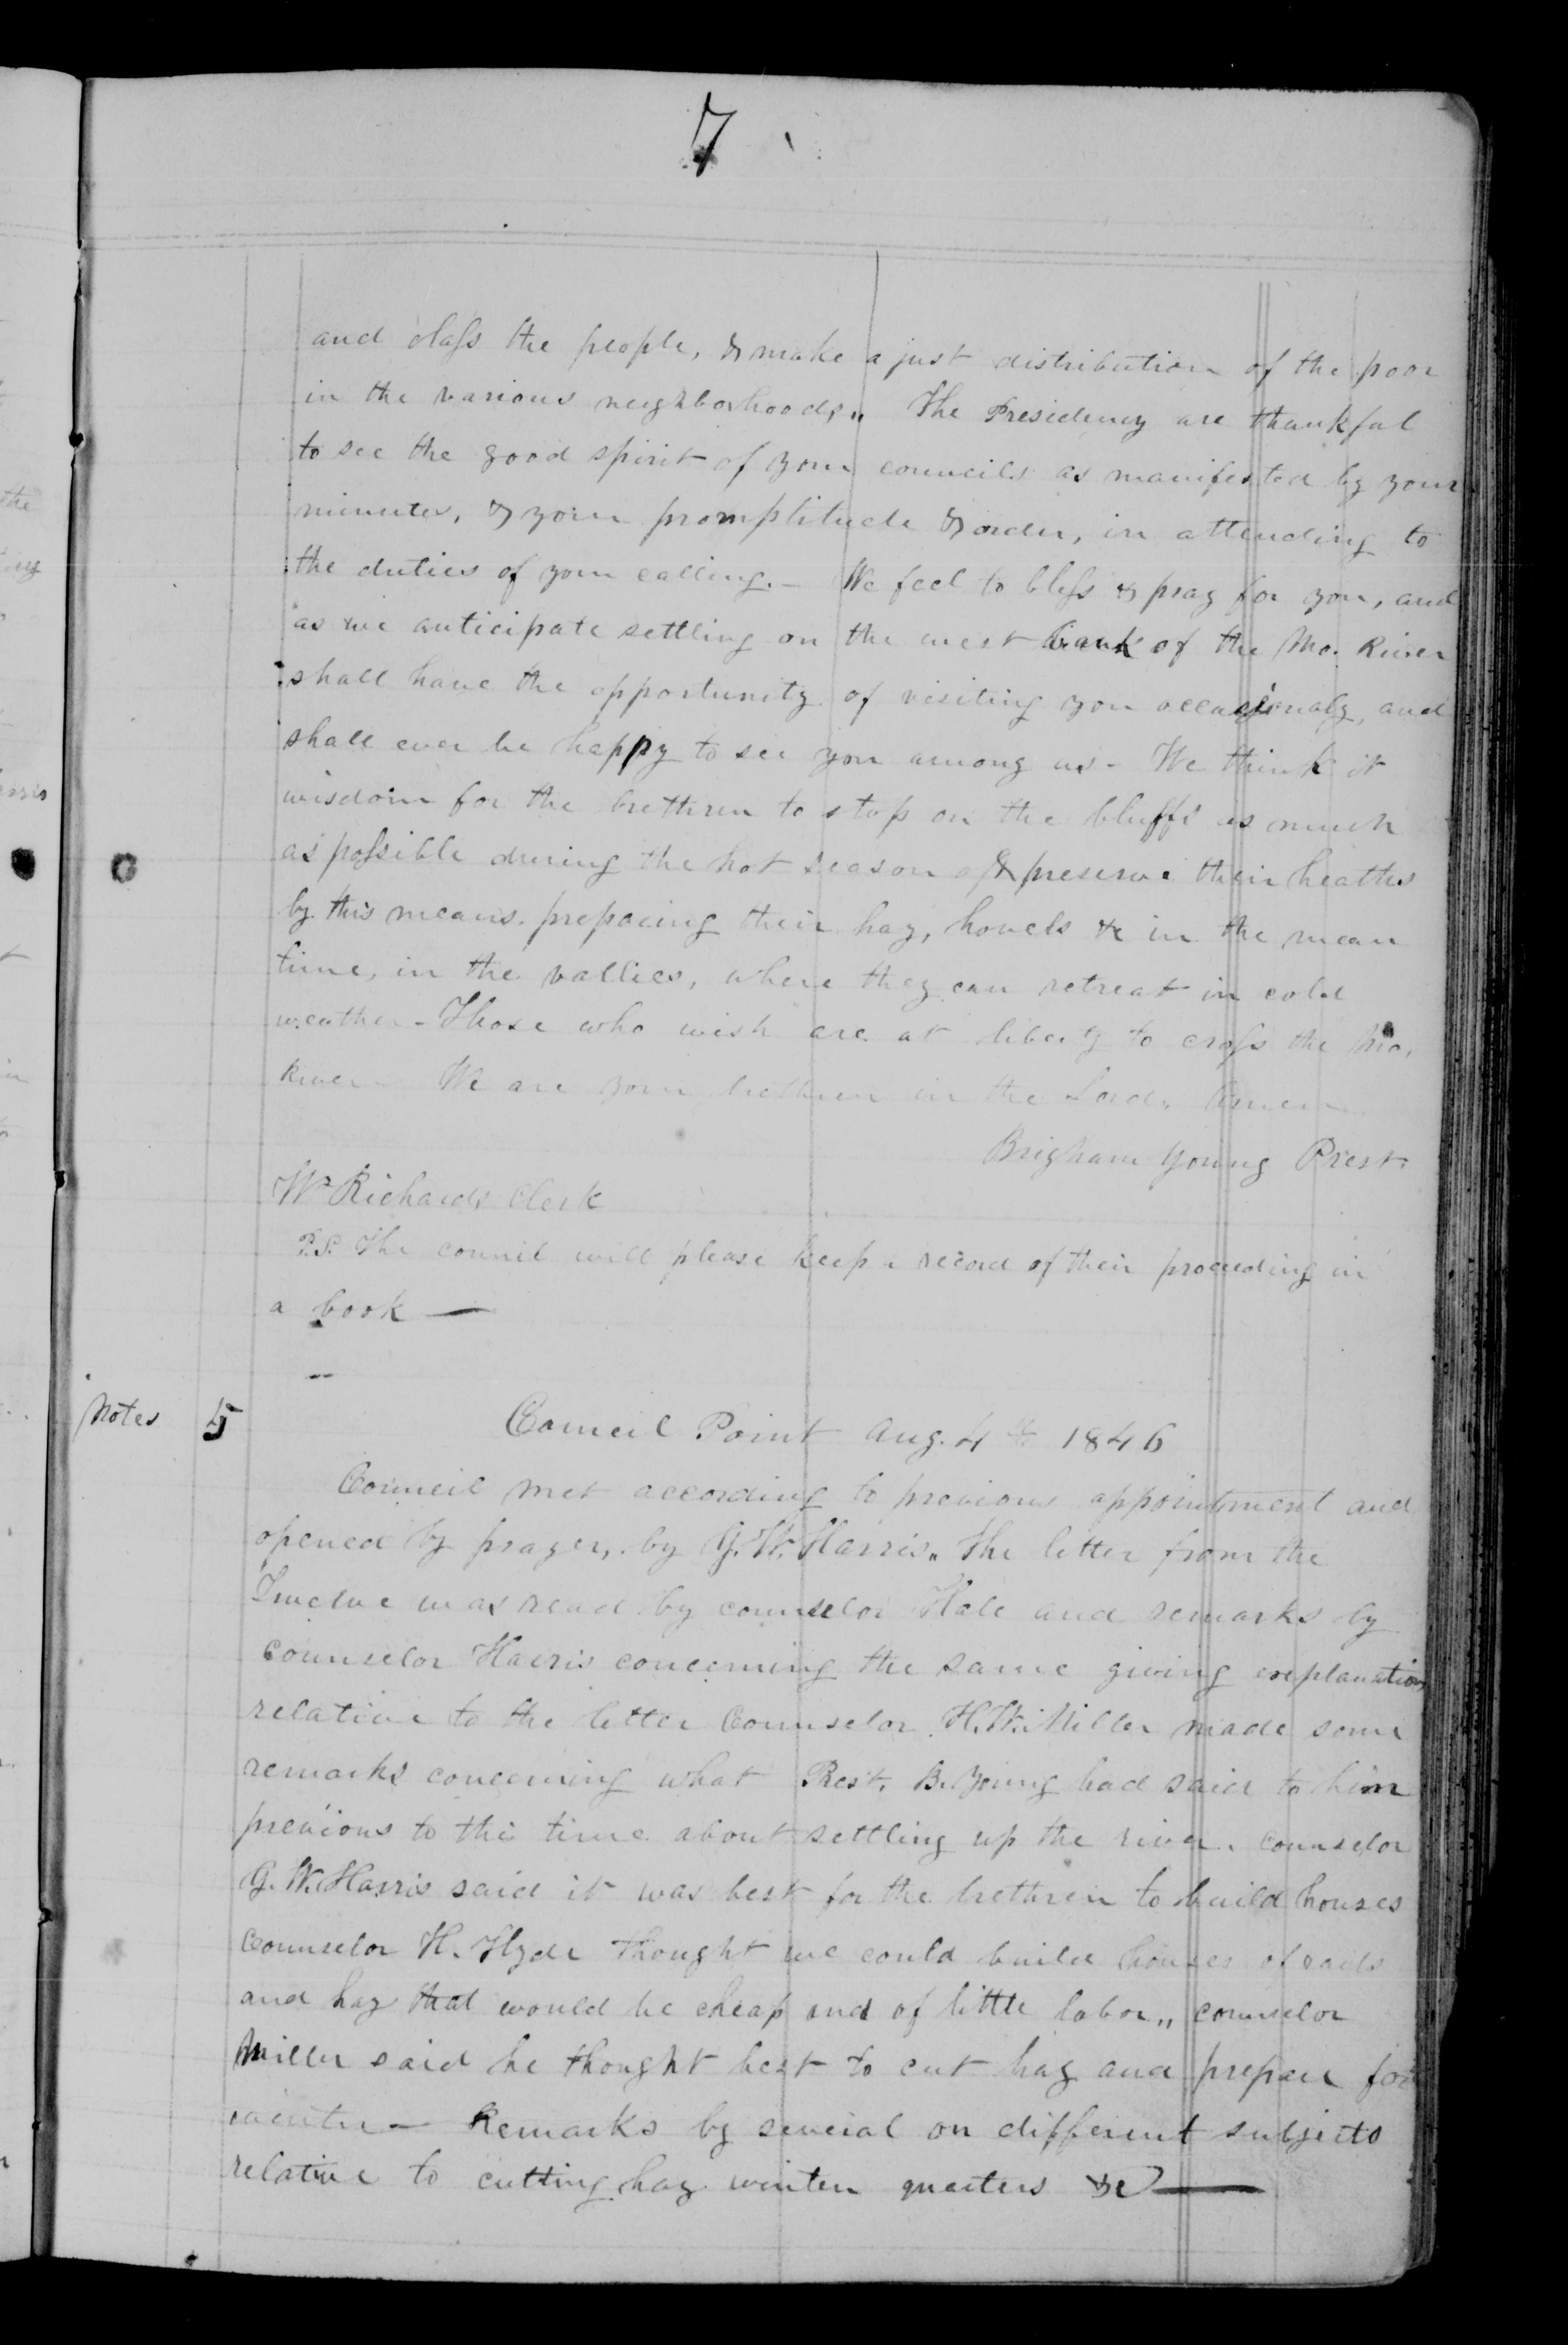 7
and class the people, & make a just distribution of the poor
in the various neighborhoods,, The Presidency are thankful
to see the good spirit of your councils as manifested by your
minutes, & your promptitude & order, in attending to
the duties of your calling. - We feel to bless & pray for you, and
as we anticipate settling on the west bank of the Mo. River
shall have the opportunity of visiting you occasionaly, and
shall ever be happy to see you among us - We think it
wisdom for the brethren to stop on the bluffs as much
as possible during the hot season & preserve their healths
by this means. prepairing their hay, hovels &c in the mean
time, in the vallies, where they can retreat in cold
weather - Those who wish are at liberty to cross the Mo.
River - We are your brethren in the Lord. Amen
Brigham Young Prest.
W. Richards Clerk
P.S. The council will please keep a record of their proceeding in
a book —
Notes 5
Council Point Aug. 4th 1846
Council met according to previous appointment and
opened by prayer, by G. W. Harris,, The letter from the
Twelve was read by counselor Hale and remarks by
Counselor Harris concerning the same giving explanation
relative to the letter Counselor H. W. Miller made some
remarks concerning what Prest. B. Young had said to him
previous to this time about settling up the river. counselor
G. W. Harris said it was best for the brethren to build houses
Counselor H. Hyde thought we could build houses of rails
and hay that would be cheap and of little labor,, counselor
Miller said he thought best to cut hay and prepare for
winter - Remarks by several on different subjects
relative to cutting hay winter quarters &c —